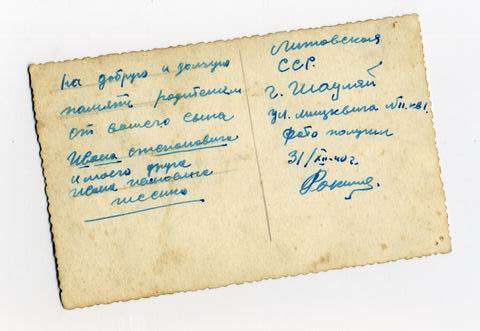 на добрую и долгую
память родителям
от вашего сына
Ивана степановича
и моего друга
Ивана ивановича
Литовская
ССР.
г. Шауляй
ул. мицкевича №11. кв1.
фото получил
31/XII-40 г.